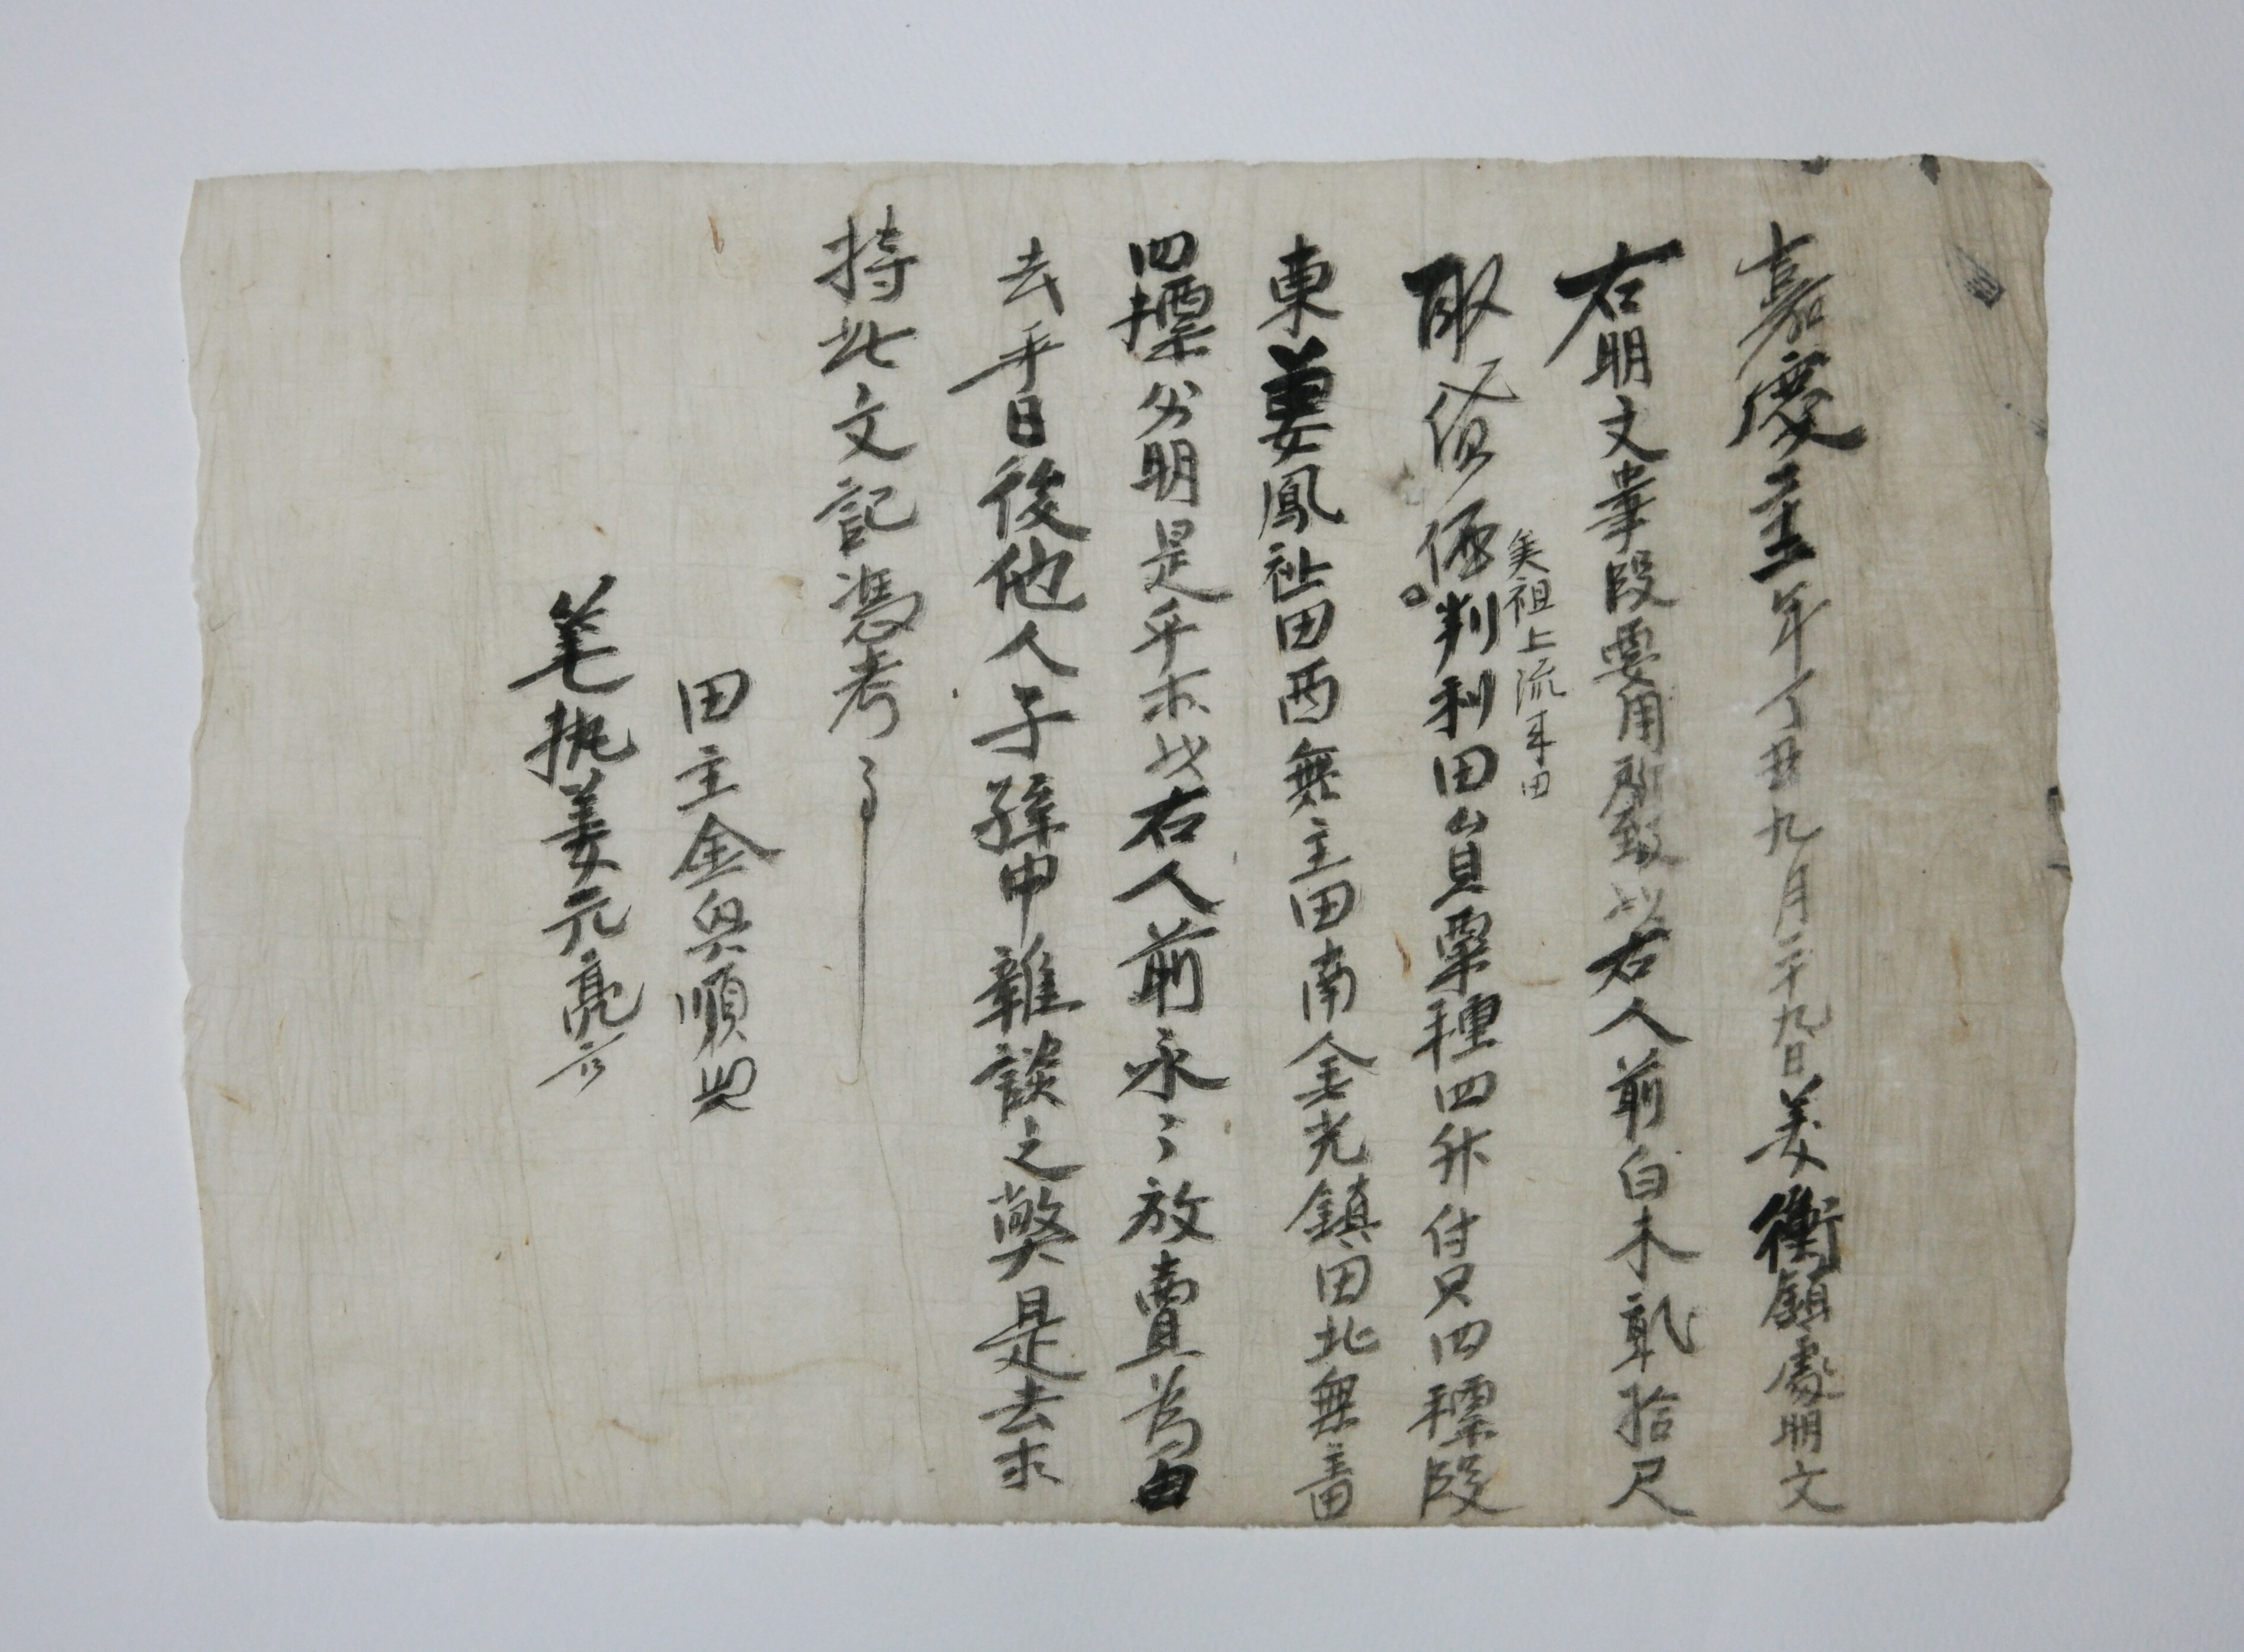 嘉慶二十二年丁丑九月二十九日姜衡鎮處明文
右明文事段要用所致以右人前白木貳拾尺
取貸價判利田員粟種四升付只四標段
矣祖上流来田
東姜鳳祉田西無主田南金光鎮田北無主田
四標分明是乎朩以右人前永〻放賣為由
去乎日後他人子孫中雜談之弊是去朩
持此文記憑考事
田主金與順
筆執姜元亮